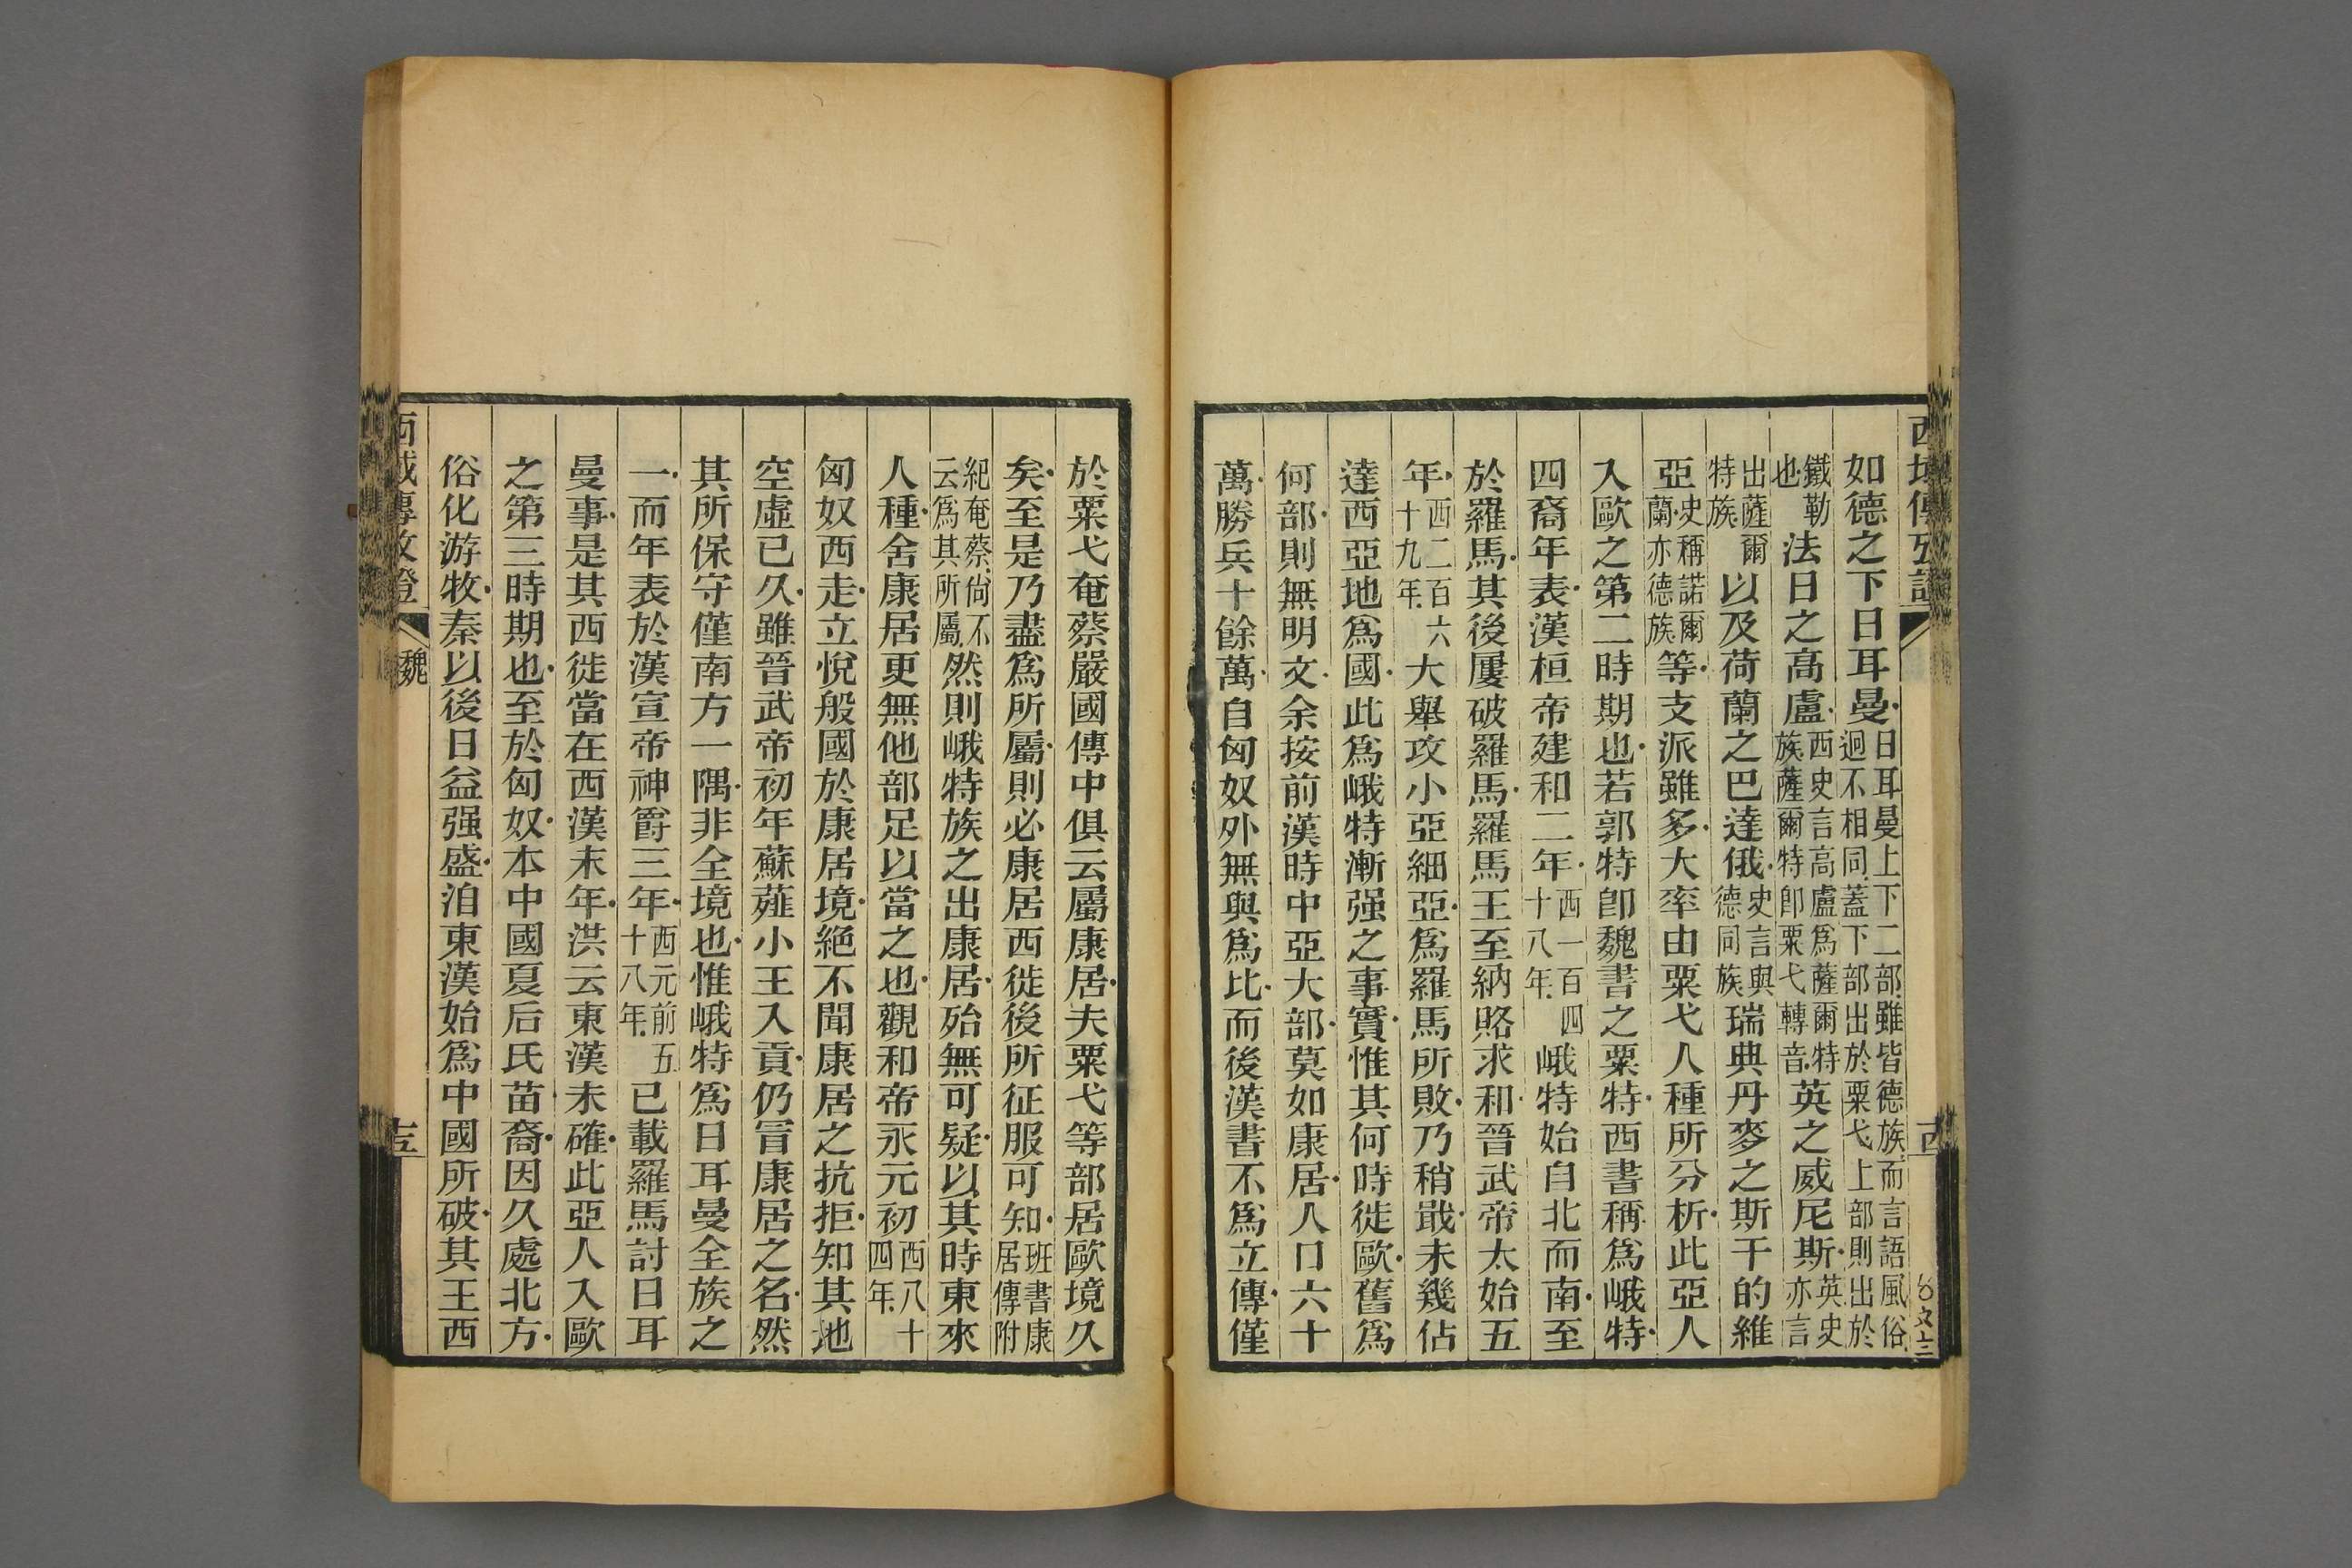 如德之下日耳曼日耳曼上下二部雖皆德族而言語風俗迥不相同蓋下部出於粟弋上部則出於
鐵勒也法日之高盧西史言高盧爲薩爾特族薩爾特卽粟弋轉音英之威尼斯英史亦言
出薩爾特族以及荷蘭之巴達俄史言與德同族瑞典丹麥之斯干的維
亞史稱諾爾蘭亦德族等支派雖多大率由粟弋人種所分析此亞人
入歐之第二時期也若郭特卽魏書之粟特西書稱爲峨特
四裔年表漢桓帝建和二年西一百四十八年峨特始自北而南至
於羅馬其後屢破羅馬羅馬王至納賂求和晉武帝太始五
年西二百六十九年大舉攻小亞細亞爲羅馬所敗乃稍戢未幾佔
達西亞地爲國此爲峨特漸强之事實惟其何時徙歐舊爲
何部則無明文余按前漢時中亞大部莫如康居人口六十
萬勝兵十餘萬自匈奴外無與爲比而後漢書不爲立傳僅
於粟弋奄蔡嚴國傳中俱云屬康居夫粟弋等部居歐境久
矣至是乃盡爲所屬則必康居西徙後所征服可知班書康居傳附
紀奄蔡尙不云爲其所屬然則峨特族之出康居殆無可疑以其時東來
人種舍康居更無他部足以當之也觀和帝永元初西八十四年
匈奴西走立悅般國於康居境絕不聞康居之抗拒知其地
空虛已久雖晉武帝初年蘇薤小王入貢仍冒康居之名然
其所保守僅南方一隅非全境也惟峨特爲日耳曼全族之
一而年表於漢宣帝神爵三年西元前五十八年已載羅馬討日耳
曼事是其西徙當在西漢末年洪云東漢未確此亞人入歐
之第三時期也至於匈奴本中國夏后氏苗裔因久處北方
俗化游牧秦以後日益强盛洎東漢始爲中國所破其王西
西域傳攷證
魏